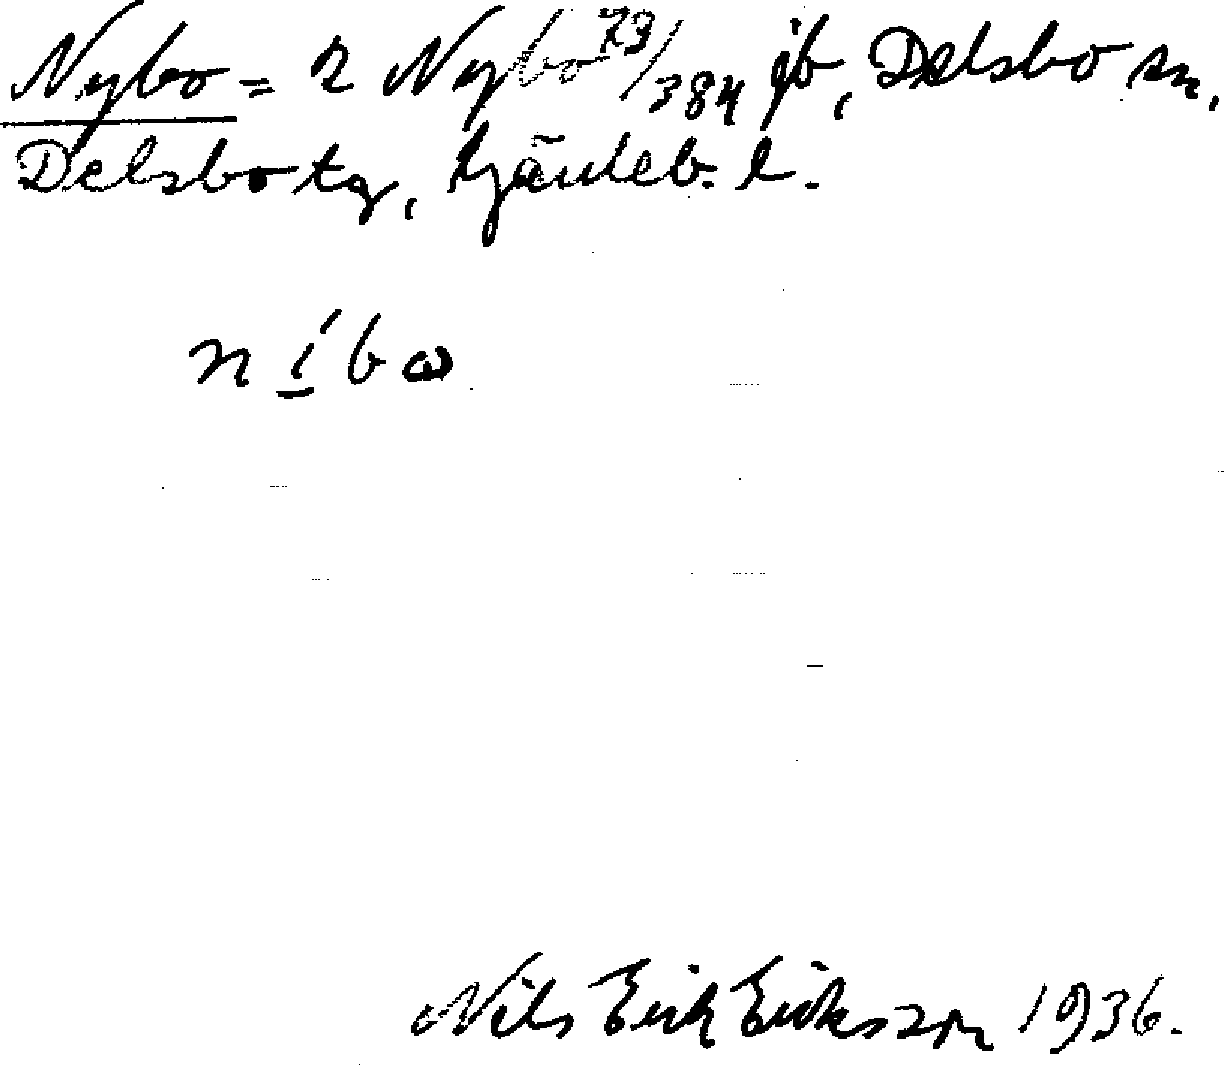 Nybo = 2 Nybo 73/384 jb, Delsbo sn,
Delsbo tg, Gävleb. l.
níbω
Nils Erik Eriksson 1936.